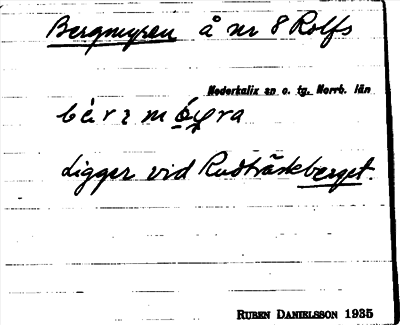 Bergmyren å nr 8 Rolfs
Nederkalix sn o. tg. Norrb. län
ligger vid Rudträskberget.
RUBEN DANIELSSON 1935